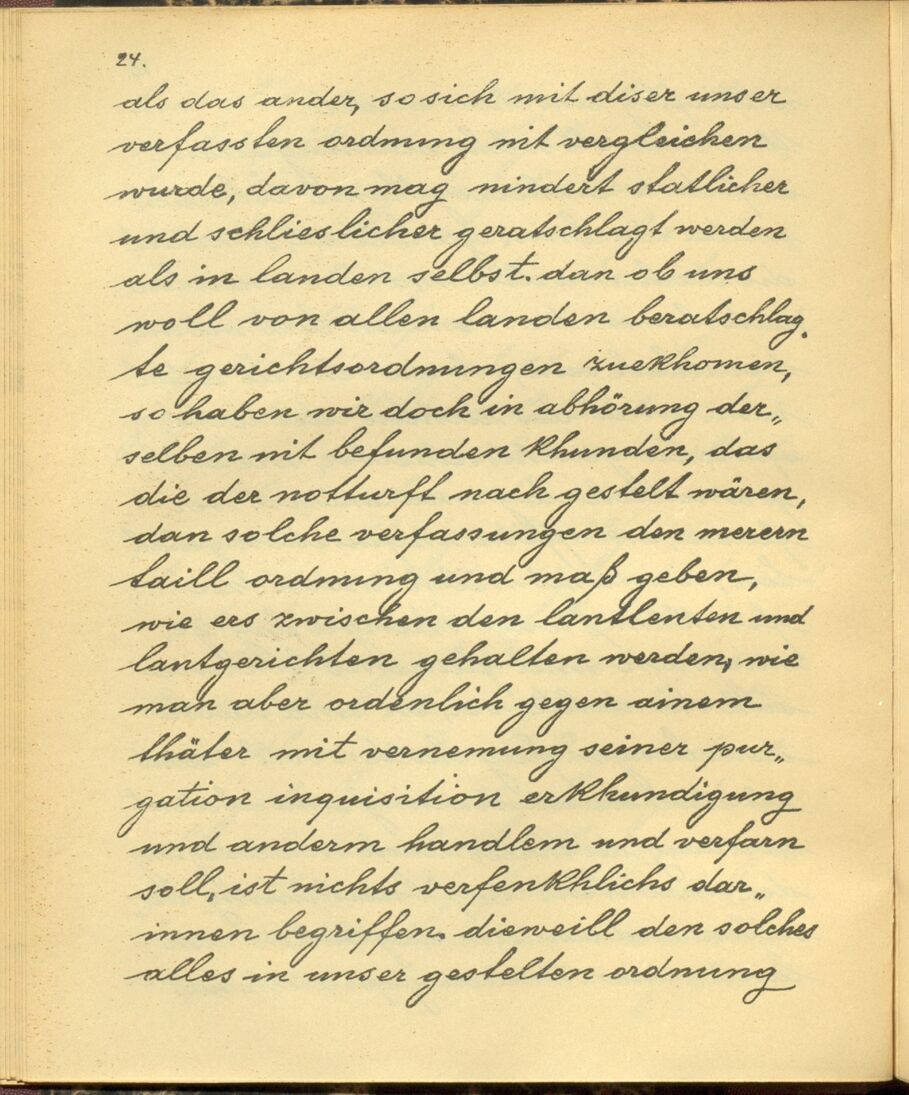 24.
als das ander, so sich mit diser unser
verfassten ordnung nit vergleichen
wurde, davon mag nindert statlicher
und schlieslicher geratschlagt werden
als in landen selbst. dan ob uns
woll von allen landen beratschlag„
te gerichtsordnungen zuekhomen,
so haben wir doch in abhörung der„
selben nit befunden khunden, das
die der notturft nach gestelt wären,
dan solche verfassungen den merern
taill ordnung und maß geben,
wie ers zwischen den lantlenten und
lantgerichten gehalten werden, wie
man aber ordenlich gegen ainem
thäter mit vernemung seiner pur„
gation inquisition erkhundigung
und anderm handlem und verfarn
soll, ist nichts verfenkhlichs dar„
innen begriffen. dieweill den solches
alles in unser gestelten ordnung